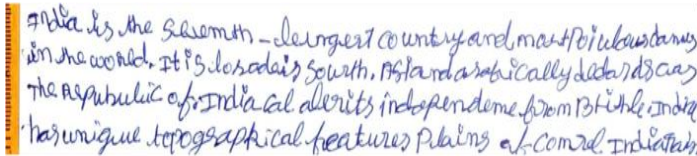 India is the Seventh - largest country and most Poiulous danus
in the world. It is losadais South. Asia and arabically dedards as
The Republic of India cal alerits independeme from British. India
has unique topographical features Plains of Comral Indian